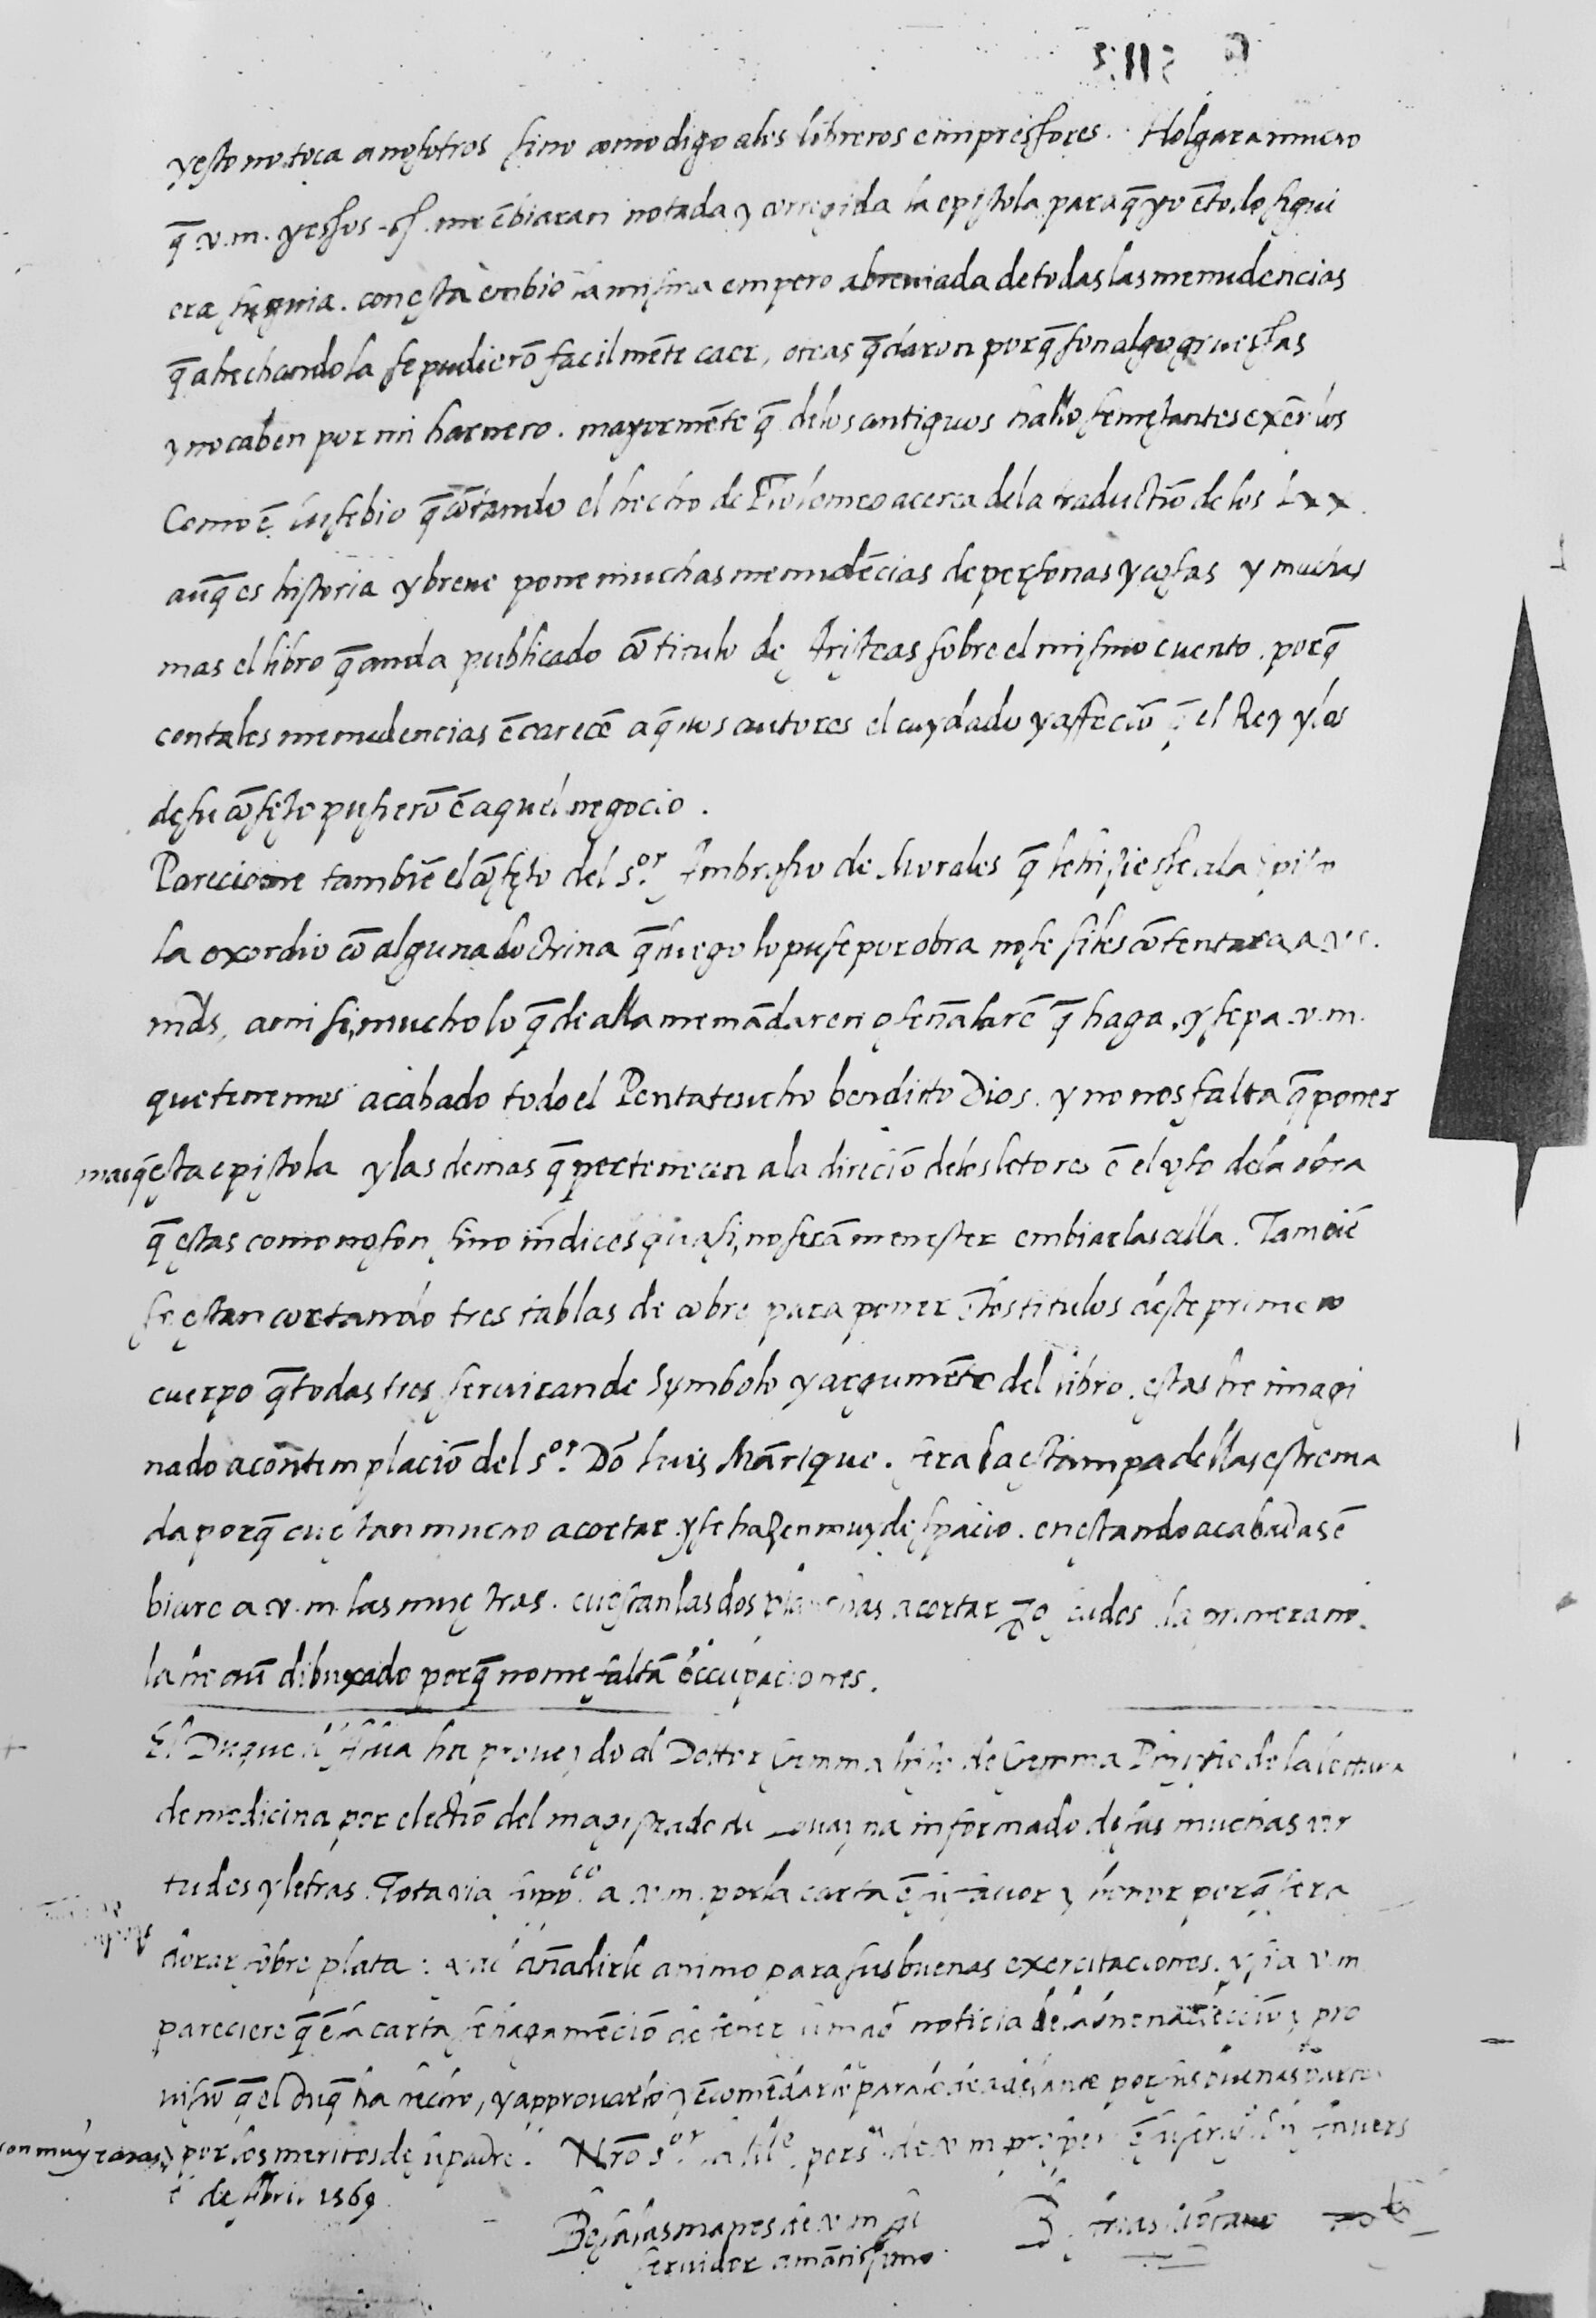 y esto no toca a nosotros sino como digo a los libreros e impressores. Holgara mucho
q̄ v.m. y essos ss. me ēbiaran notada y corregida la epistola para q̄ yo ē todo sigui
era su guia. con esta enbio la misma empero abreuiada de todas las menudencias
q̄ ahechandola se pudierō facilmēte caer, otras q̄daron porq̄ son algo gruessas
y no caben por mi harnero. mayormēte q̄ de los antiguos hallo semejantes exēplos
Como ē Eusebio q̄ cōtando el hecho de Ptolomeo acerca de la traductiō de los Lxx.
aūq̄ es historia y breue pone muchas menudēcias de personas y cosas y muchas
mas el libro q̄ anda publicado cō titulo de Aristeas sobre el mismo cuento. porq̄
con tales menudencias ēcarecē aq̄llos autores el cuydado y affectiō q̄ el Rey y los
de su cōsejo pusierō ē aquel negocio.
Pareciome tambiē el cōsejo del s.or Ambrosio de Morales q̄ se hiziesse a la Episto
la exordio cō alguna doctrina q̄ luego lo puse por obra no se si les cōtentara a v.s.
mds, a mi si, mucho lo q̄ de alla me mādaren o señalarē q̄ haga, y sepa v.m.
que tenemos acabado todo el Pentateucho bendicto Dios. y no nos falta q̄ poner
mas q̄ esta epistola y las demas q̄ pertenecen a la direciō de los letores ē el vso de la obra
q̄ estas como no son sino indices quasi, no serā menester embiarlas alla. Tambiē
se estan cortando tres tablas de cobre para poner ē los titulos deste primero
cuerpo q̄ todas tres seruiran de symbolo y argumēto del libro. estas he imagi
nado a contemplaciō del s.or Dō Luis Mārique. sera la estampa dellas estrema
da porq̄ cuestan mucho a cortar y se hazen muy de spacio. en estando acabadas ē
biare a v.m. las muestras. cuestan las dos planchas a cortar 70 ∇dos la primera no
la he aū dibuxado porq̄ no me faltā occupaciones.
El Duque d'Alua ha proueydo al Dottor Gemma hijo de Gemma Phrysio de la lectura
de medicina por electiō del magistrado de Louayna informado de sus muchas vir
tudes y letras. Totauia supp.co a v.m. por la carta ē su fauor y honor porq̄ sera
dorar sobre plata: y añadirle animo para sus buenas exercitaciones. y si a v.m.
pareciere q̄ ē la carta se haga mēciō de tener su mad noticia de la buena elecciō y pro
uisiō q̄ el Duq̄ ha hecho, y approuarlo y ēcomēdarle para lo de adelante por sus buenas partes
son muy raras y por los meritos de su padre. Nrō s.or la Ill.e pers.a de v.m. prospere ē su seruicio. En Anuers
de Abril 1569.
Besa las manos de v.m. su B. Arias Montano
seruidor amātissimo